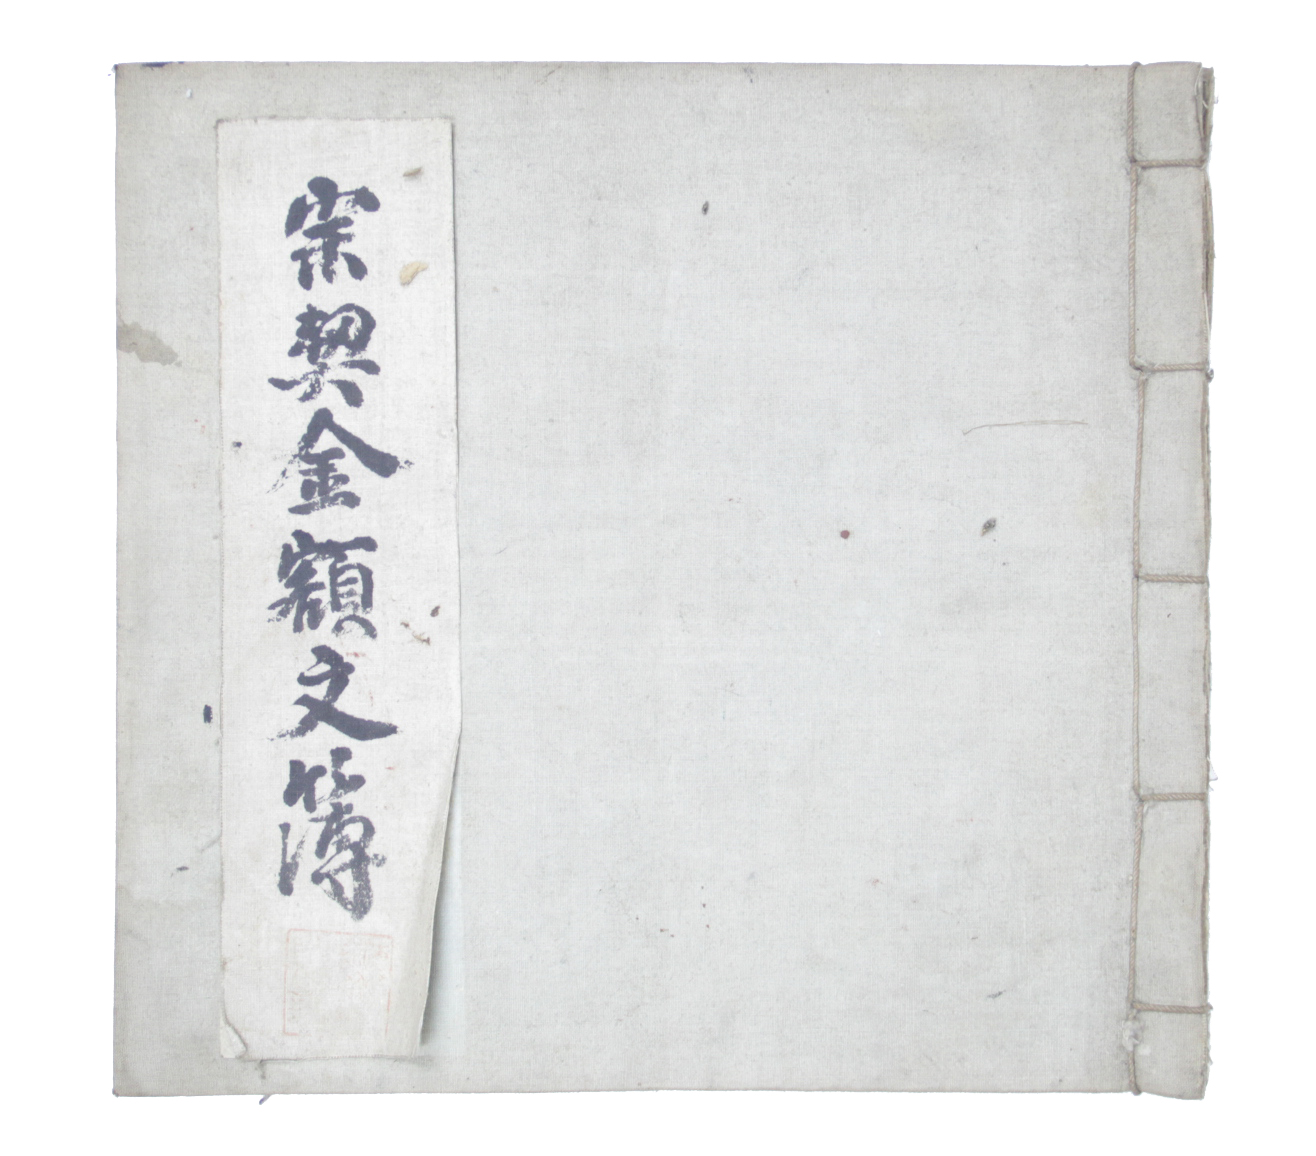 宗契金額文簿